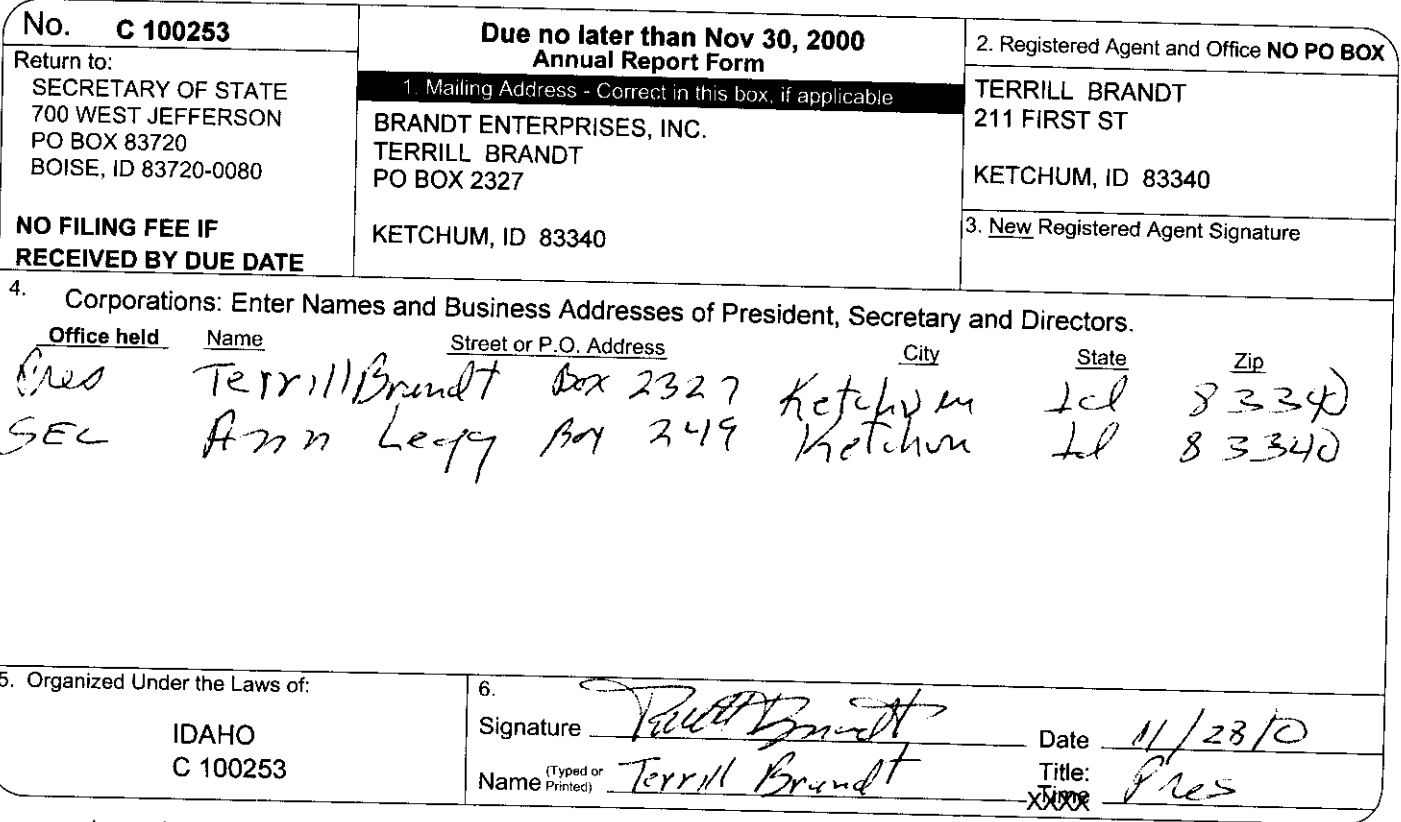 No. C 100253
Return to:
SECRETARY OF STATE
700 WEST JEFFERSON
PO BOX 83720
BOISE, ID 83720-0080
NO FILING FEE IF
RECEIVED BY DUE DATE
Due no later than Nov 30, 2000
Annual Report Form
1. Mailing Address - Correct in this box, if applicable
BRANDT ENTERPRISES, INC.
TERRILL BRANDT
PO BOX 2327
KETCHUM, ID 83340
2. Registered Agent and Office NO PO BOX
TERRILL BRANDT
211 FIRST ST
KETCHUM, ID 83340
3. New Registered Agent Signature
4. Corporations: Enter Names and Business Addresses of President, Secretary and Directors.
Office held Name Street or P.O. Address City State Zip
Pres Terrill Brandt Box 2327 Ketchum Id 83340
SEC Ann Legg Box 249 Ketchum Id 83340
5. Organized Under the Laws of:
IDAHO
C 100253
6.
Signature Terrill Brandt Date 11/28/0
Name (Typed or Printed) Terrill Brandt Title: Pres